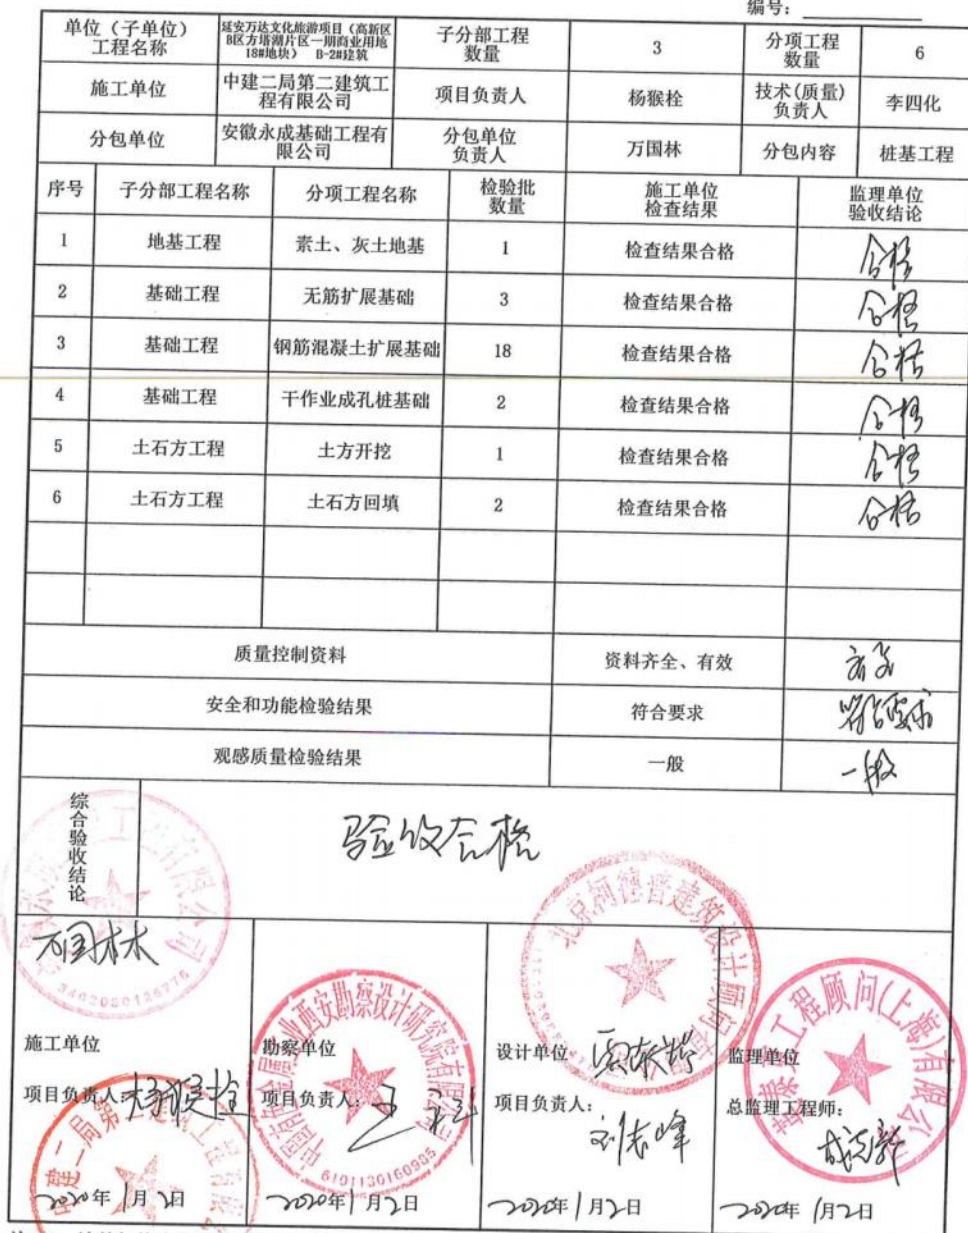 编号:
单位（子单位）
工程名称
延安万达文化旅游项目（高新区
B区方塔湖片区一期商业用地
18#地块） B-2#建筑
子分部工程
数量
3
分项工程
数量
6
施工单位
中建二局第二建筑工
程有限公司
项目负责人
杨猴栓
技术(质量)
负责人
李四化
分包单位
安徽永成基础工程有
限公司
分包单位
负责人
万国林
分包内容
桩基工程
序号
子分部工程名称
分项工程名称
检验批
数量
施工单位
检查结果
监理单位
验收结论
1
地基工程
素土、灰土地基
1
检查结果合格
合格
2
基础工程
无筋扩展基础
3
检查结果合格
合格
3
基础工程
钢筋混凝土扩展基础
18
检查结果合格
合格
4
基础工程
干作业成孔桩基础
2
检查结果合格
合格
5
土石方工程
土方开挖
1
检查结果合格
合格
6
土石方工程
土石方回填
2
检查结果合格
合格
质量控制资料
资料齐全、有效
安全和功能检验结果
符合要求
符合要求
观感质量检验结果
一般
一般
综合验收结论
验收合格
万国林
施工单位
项目负责人:
杨猴栓
2020年1月2日
勘察单位
项目负责人:
6101130160985
2020年1月2日
北京柯德普建筑设计顾问
设计单位
项目负责人:
刘志峰
2020年1月2日
工程顾问(上海)有限公
监理单位
总监理工程师:
2020年1月2日